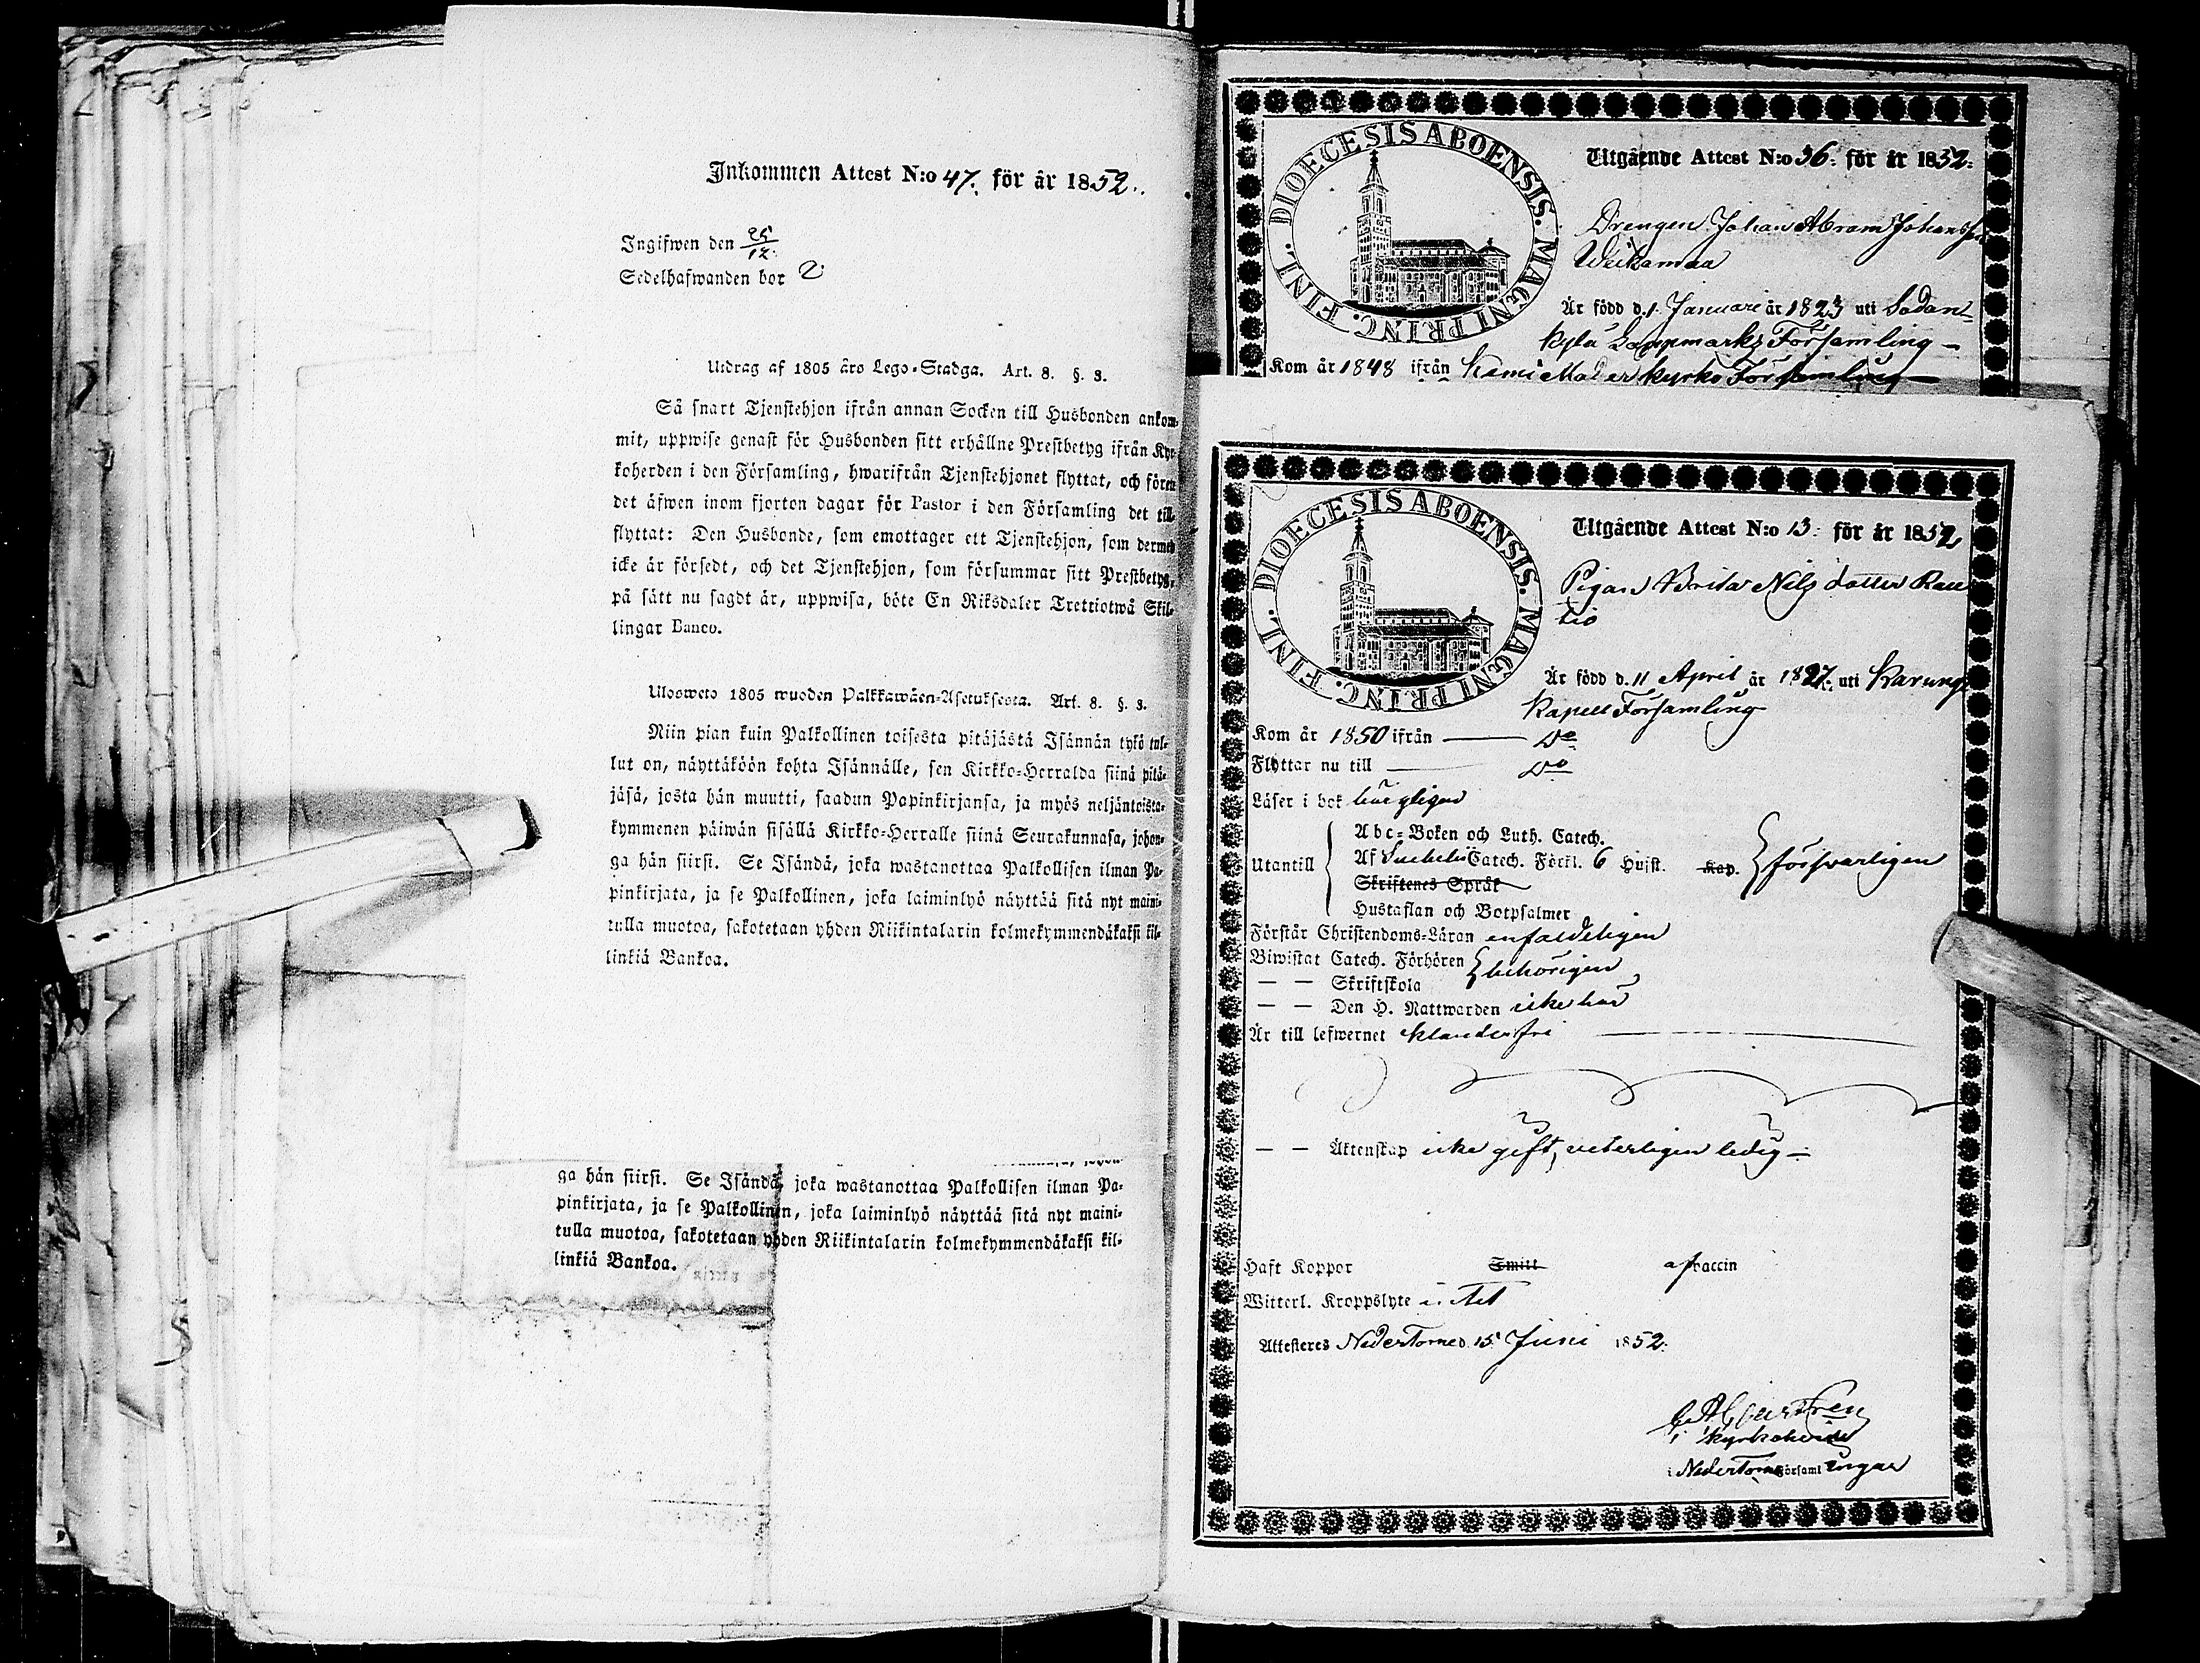 Inkommen Attest N:o 47. för år 1852.
Ingifwen den 25/12.
Sedelhafwanden bor
Utdrag af 1805 års Lego-Stadga. Art. 8. §. 3.
Så snart Tjenstehjon ifrån annan Socken till Husbonden ankom-
mit, uppwise genast för Husbonden sitt erhållne Prestbetyg ifrån Kyr-
koherden i den Församling, hwarifrån Tjenstehjonet flyttat, och förete
det äfwen inom fjorton dagar för Pastor i den Församling det till-
flyttat: Den Husbonde, som emottager ett Tjenstehjon, som dermed
icke är försedt, och det Tjenstehjon, som försummar sitt Prestbetyg,
på sätt nu sagdt är, uppwisa, böte En Riksdaler Trettiotwå Skil-
lingar Banco.
Ulosweto 1805 wuoden Palkkawäen-Asetuksesta. Art. 8. §. 3.
Niin pian kuin Palkollinen toisesta pitäjästä Isännän tykö tul-
lut on, näyttäköön kohta Isännälle, sen Kirkko-Herralda siinä pitä-
jäsä, josta hän muutti, saadun Papinkirjansa, ja myös neljäntoista-
kymmenen päiwän sisällä Kirkko-Herralle siinä Seurakunnasa, johon-
ga hän siirsi. Se Isändä, joka wastanottaa Palkollisen ilman Pa-
pinkirjata, ja se Palkollinen, joka laiminlyö näyttää sitä nyt maini-
tulla muotoa, sakotetaan yhden Riikintalarin kolmekymmendäkaksi kil-
linkiä Bankoa.
ga hän siirsi. Se Isändä, joka wastanottaa Palkollisen ilman Pa-
pinkirjata, ja se Palkollinen, joka laiminlyö näyttää sitä nyt maini-
tulla muotoa, sakotetaan yhden Riikintalarin kolmekymmendäkaksi kil-
linkiä Bankoa.
DIOECESIS ABOENSIS. MAGNI PRINC. FINL.
Utgående Attest N:o 36. för år 1852.
Drengen Johan Abram Johansson
Weikamaa
Är född d. 1. Januari år 1823 uti Sodan-
kylä Lappmarks Församling
Kom år 1848 ifrån Kemi Moderkyrko Församling
DIOECESIS ABOENSIS. MAGNI PRINC. FINL.
Utgående Attest N:o 13. för år 1852
Pigan Brita Nils dotter Rau
tio
Är född d. 11 April år 1827. uti Karungi
Kapell Församling
Kom år 1850 ifrån Do
Flyttar nu till Do
Läser i bok
Utantill
Abc-Boken och Luth. Catech.
Af Svebelii Catech. Förkl. 6 Hufst. Kap. försvarligen
Skriftenes Språk
Hustaflan och Botpsalmer
Förstår Christendoms-Läran enfaldeligen
Biwistat Catech. Förhören behörigen
— — Skriftskola
— — Den H. Nattwarden icke här
Är till lefwernet klanderfri
— — Äktenskap icke gift, veterligen ledig
Haft Koppor Smitt af vaccin
Witterl. Kroppslyte intet
Attesteres NederTorneå 15 Juni 1852.
Kyrkoherde
i NederTorneå Församlingar